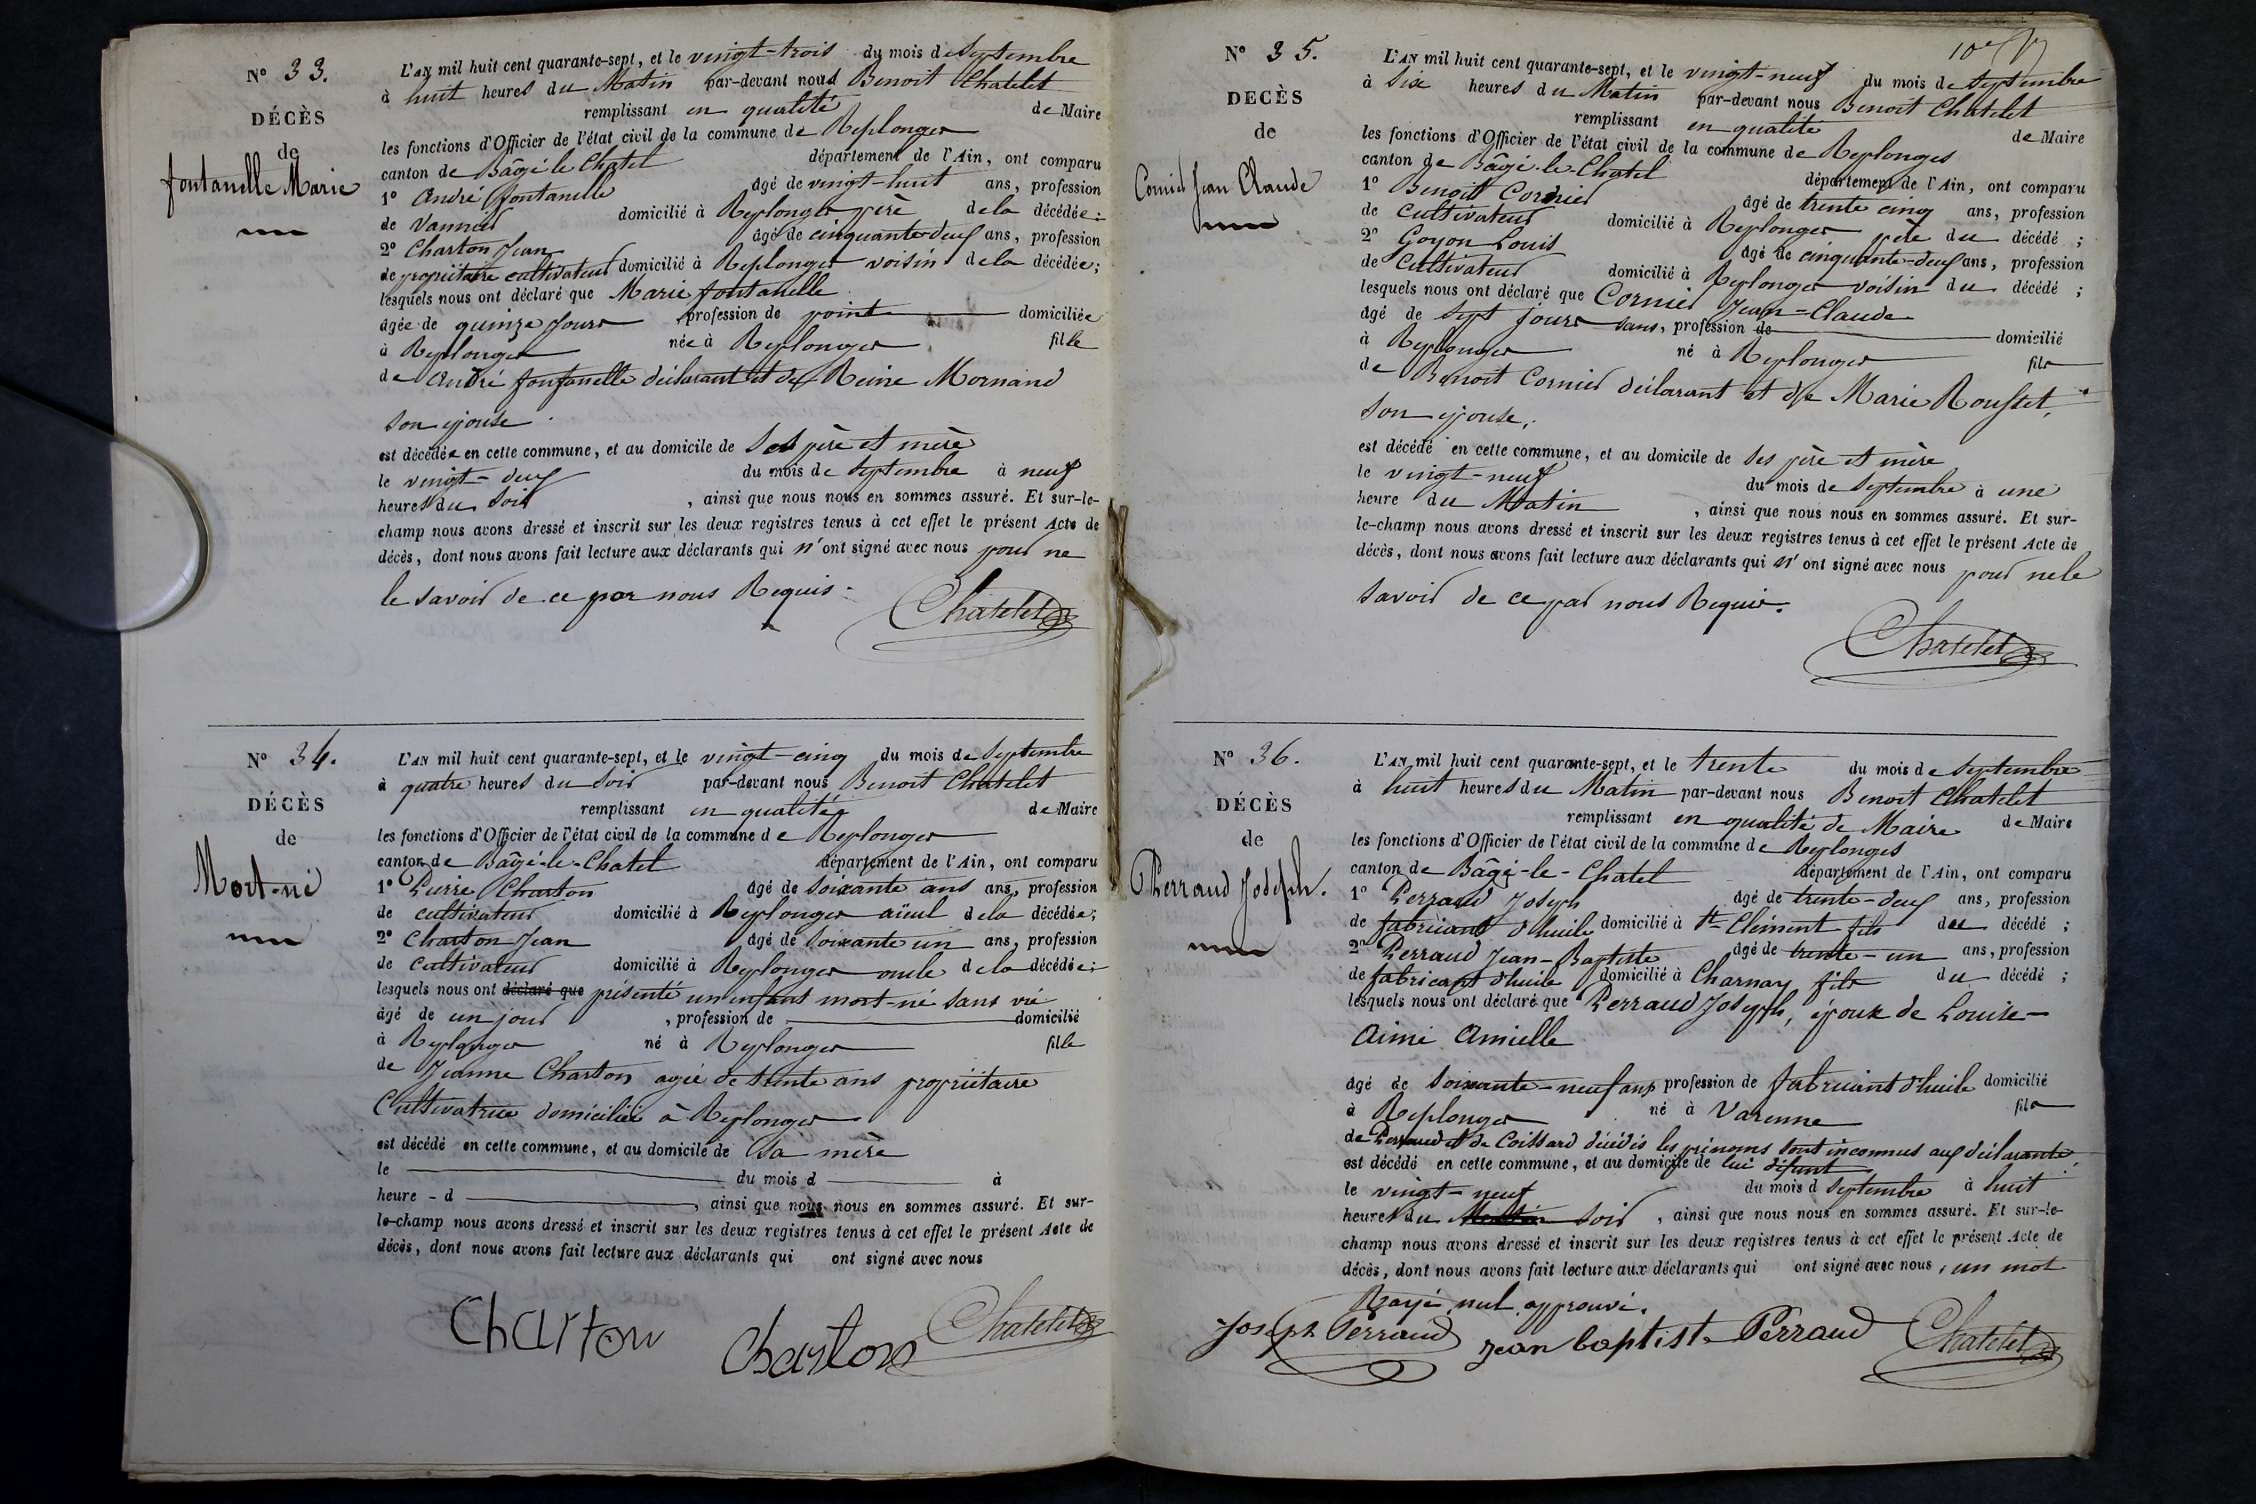 N° 33.
DÉCÈS
de
fontanelle Marie
L'AN mil huit cent quarante-sept, et le vingt-trois du mois de Septembre
à huit heures du Matin par-devant nous Benoit Chatelet
remplissant en qualité de Maire
les fonctions d'Officier de l'état civil de la commune de Replonges
canton de Bâgé le Chatel département de l'Ain, ont comparu
1° André fontanelle âgé de vingt-huit ans, profession
de Vannier domicilié à Replonges père dela décédée;
2° Charton Jean âgé de cinquante-deux ans, profession
de propriétaire cultivateur domicilié à Replonges voisin dela décédée;
lesquels nous ont déclaré que Marie fontanelle
âgée de quinze jours, profession de point domiciliée
à Replonges née à Replonges fille
de André fontanelle déclarant et de Reine Mornand
son épouse
est décédée en cette commune, et au domicile de Ses père et mère
le vingt-deux du mois de Septembre à neuf
heures du Soir, ainsi que nous nous en sommes assuré. Et sur-le-
champ nous avons dressé et inscrit sur les deux registres tenus à cet effet le présent Acte de
décès, dont nous avons fait lecture aux déclarants qui n'ont signé avec nous pour ne
le savoir de ce par nous Requis.
Chatelet
N° 34.
DÉCÈS
de
Mort-né
L'AN mil huit cent quarante-sept, et le vingt-cinq du mois de Septembre
à quatre heures du Soir par-devant nous Benoit Chatelet
remplissant en qualité de Maire
les fonctions d'Officier de l'état civil de la commune de Replonges
canton de Bâgé-le-Chatel département de l'Ain, ont comparu
1° Pierre Charton âgé de Soixante ans ans, profession
de cultivateur domicilié à Replonges aïeul dela décédée;
2° Charton Jean âgé de Soixante un ans, profession
de cultivateur domicilié à Replonges oncle dela décédée;
lesquels nous ont déclaré que présenté un enfant mort-né sans vie
âgé de un jour, profession de domicilié
à Replonges né à Replonges fille
de Jeanne Charton agée de trente ans propriétaire
Cultivatrice domiciliée à Replonges
est décédé en cette commune, et au domicile de Sa mère
le du mois d à
heure d, ainsi que nous nous en sommes assuré. Et sur-
le-champ nous avons dressé et inscrit sur les deux registres tenus à cet effet le présent Acte de
décès, dont nous avons fait lecture aux déclarants qui ont signé avec nous
Charton Charton Chatelet
10e
N° 35.
DECÈS
de
Cornier Jean Claude
L'AN mil huit cent quarante-sept, et le vingt-neuf du mois de Septembre
à Six heures du Matin par-devant nous Benoit Chatelet
remplissant en qualité de Maire
les fonctions d'Officier de l'état civil de la commune de Replonges
canton de Bâgé-le-Chatel département de l'Ain, ont comparu
1° Benoit Cornier âgé de trente cinq ans, profession
de cultivateur domicilié à Replonges père du décédé;
2° Goyon Louis âgé de cinquante-deux ans, profession
de cultivateur domicilié à Replonges voisin du décédé;
lesquels nous ont déclaré que Cornier Jean-Claude
âgé de Sept jours sans, profession de domicilié
à Replonges né à Replonges fils
de Benoit Cornier déclarant et de Marie Rousset,
son épouse,
est décédé en cette commune, et au domicile de Ses père et mère
le vingt-neuf du mois de Septembre à une
heure du Matin, ainsi que nous nous en sommes assuré. Et sur-
le-champ nous avons dressé et inscrit sur les deux registres tenus à cet effet le présent Acte de
décès, dont nous avons fait lecture aux déclarants qui n'ont signé avec nous pour ne le
Savoir de ce par nous Requis.
Chatelet
N° 36.
DÉCÈS
de
Perraud Joseph.
L'AN mil huit cent quarante-sept, et le trente du mois de Septembre
à huit heures du Matin par-devant nous Benoit Chatelet
remplissant en qualité de Maire de Maire
les fonctions d'Officier de l'état civil de la commune de Replonges
canton de Bâgé-le-Chatel département de l'Ain, ont comparu
1° Perraud Joseph âgé de trente-deux ans, profession
de fabricant d'huile domicilié à St Clément fils du décédé;
2° Perraud Jean-Baptiste âgé de trente-un ans, profession
de fabricant d'huile domicilié à Charnay fils du décédé;
lesquels nous ont déclaré que Perraud Joseph, époux de Louise-
Aimé Amielle
âgé de Soixante-neuf ans profession de fabricant d'huile domicilié
à Replonges né à Varenne fils
de Perraud et de Coissard décédés les prénoms sont inconnus aux déclarants
est décédé en cette commune, et au domicile de lui défunt
le vingt-neuf du mois d Septembre à huit
heures du Matin Soir, ainsi que nous nous en sommes assuré. Et sur-le-
champ nous avons dressé et inscrit sur les deux registres tenus à cet effet le présent Acte de
décès, dont nous avons fait lecture aux déclarants qui ont signé avec nous, un mot
Rayé nul approuvé.
Joseph Perraud Jean baptiste Perraud Chatelet